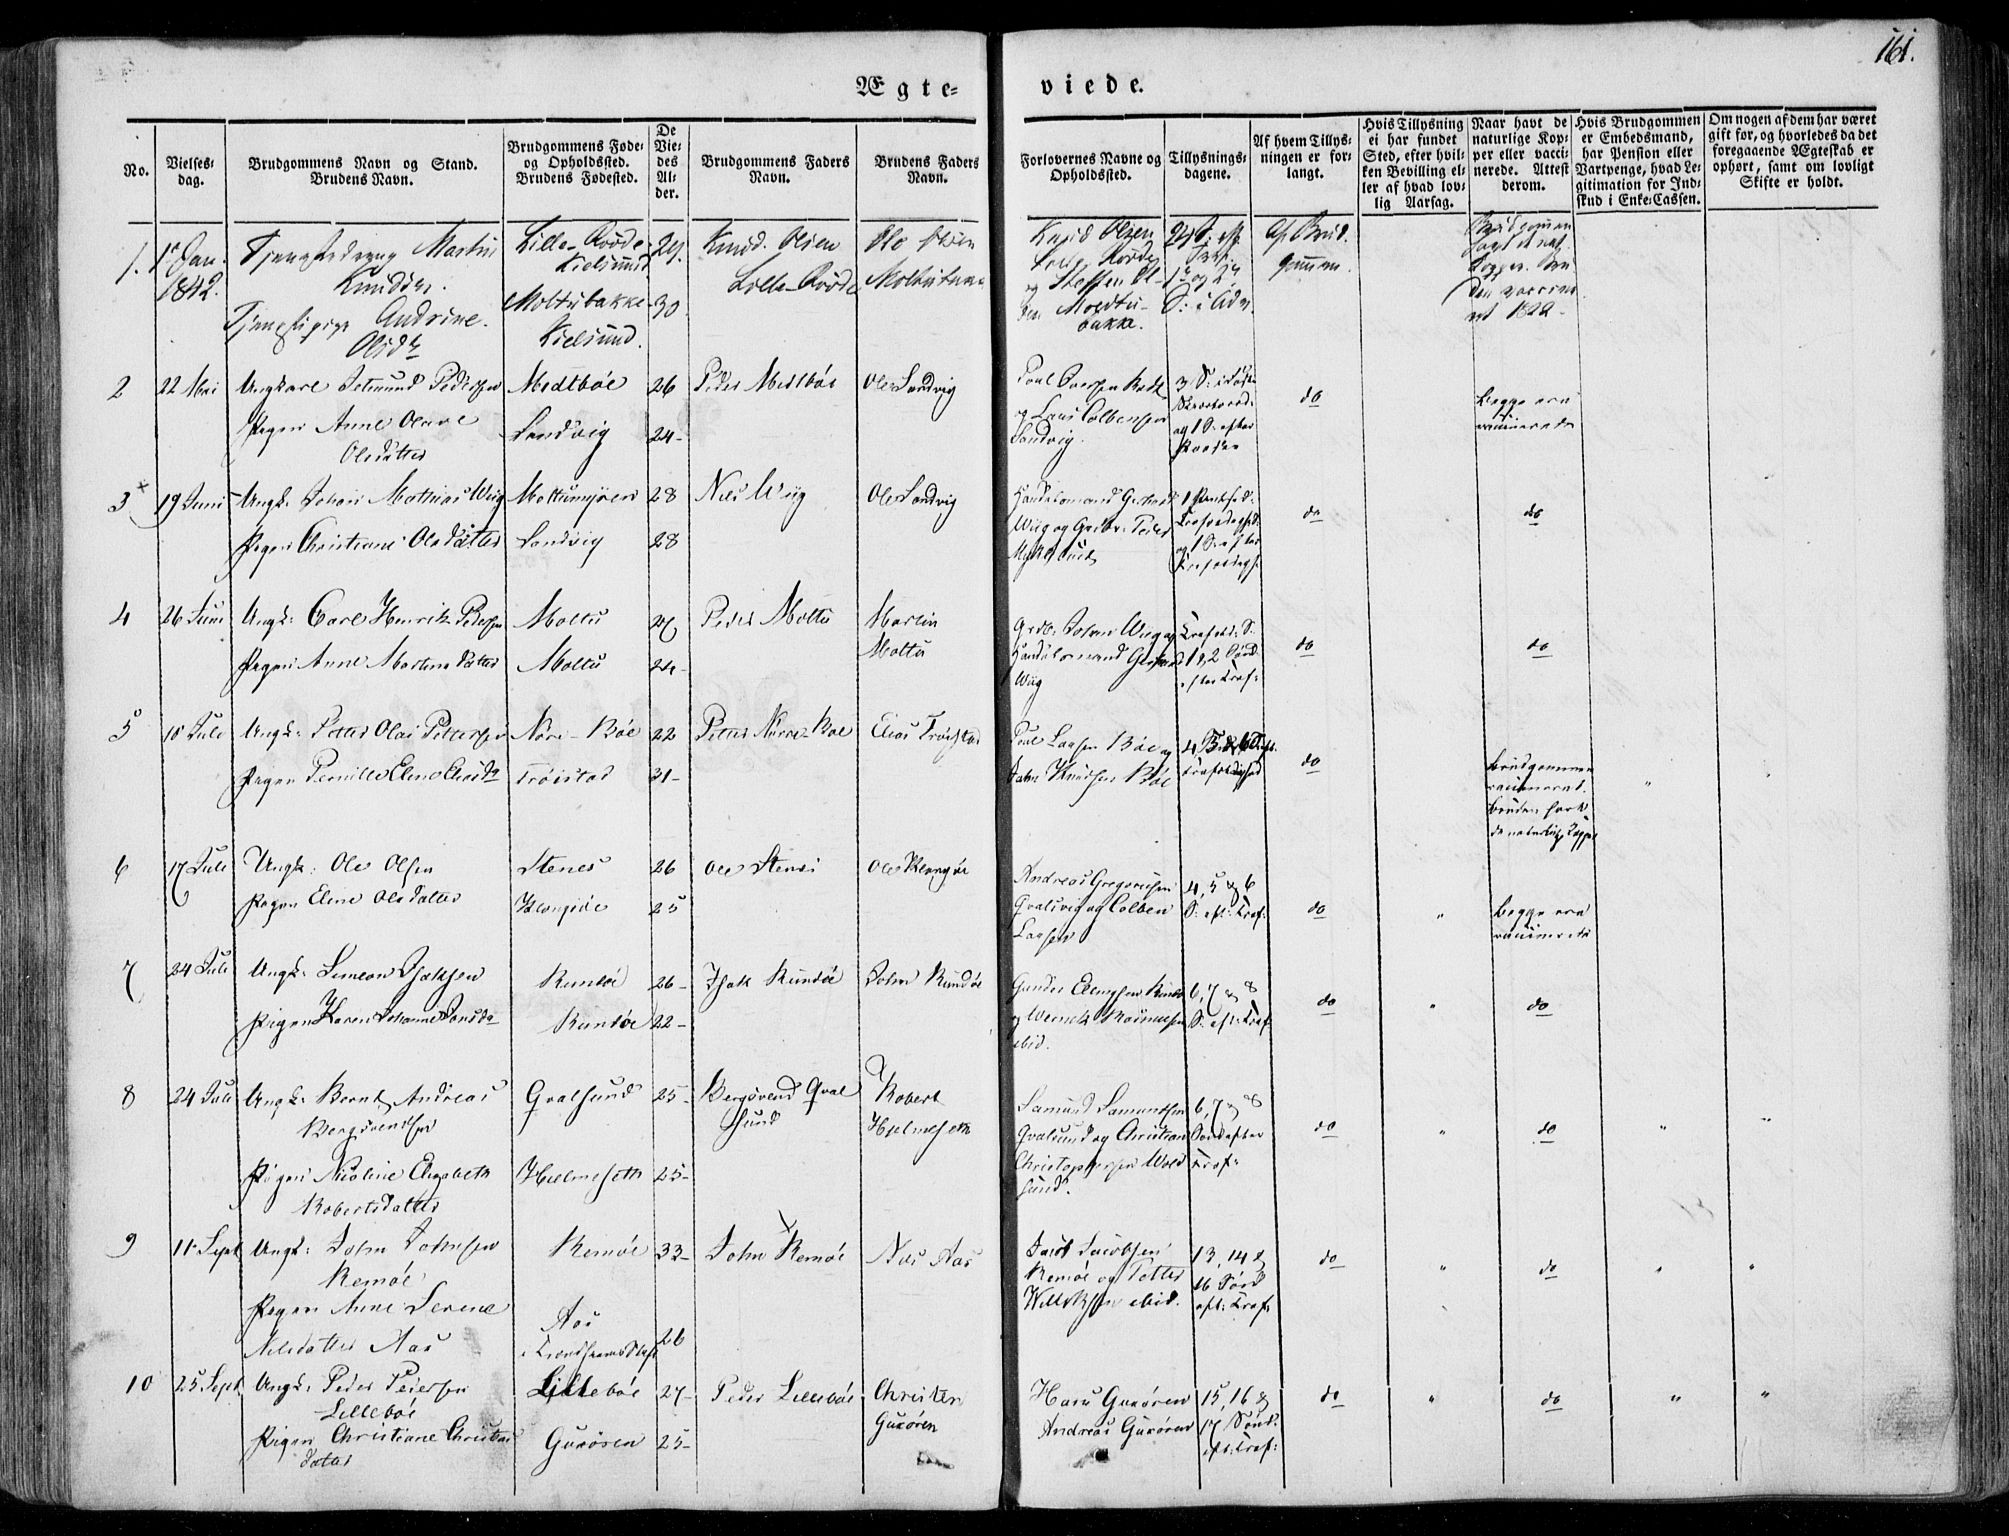 161.
Ægte-
viede.
No.
Vielses-
dag.
Brudgommens Navn og Stand.
Brudens Navn.
Brudgommens Føde-
og Opholdssted.
Brudens Fødested.
De
Vie-
des
Al-
der.
Brudgommens Faders
Navn.
Brudens Faders
Navn.
Forlovernes Navne og
Opholdssted.
Tillysnings-
dagene.
Af hvem Tillys-
ningen er for-
langt.
Hvis Tillysning
ei har fundet
Sted, efter hvil-
ken Bevilling el-
ler af hvad lov-
lig Aarsag.
Naar havt de
naturlige Kop-
per eller vacci-
nerede. Attest
derom.
Hvis Brudgommen
er Embedsmand,
har Pension eller
Vartpenge, hvad Le-
gitimation for Ind-
skud i Enke-Cassen.
Om nogen af dem har været
gift før, og hvorledes da det
foregaaende Ægteskab er
ophørt, samt om lovligt
Skifte er holdt.
1.
1 Jan.
1842.
Martin
Knudsen
Andrine
Olsdr
Lille-Røvde
Kielsund
Moltubakke
Kielsund.
29.
30
Knud Olsen
Lille-Røvde
Ole Olsen
Knud Olsen
og Steffen Ol-
sen Moltu-
bakke.
Af Brud-
gommen.
2
22 Mai
Ungkarl Pedersen
Pigen Anne Olave
Olsdatter
Medtbøe
Sandvig
26
24-
Peder Medtbøe
Ole Sandvig
og Lars Colbensen
Sandvig.
og 1 S: efter
Paaske
do
begge ere
vaccinerede
3
19 Juni
Ungk: Johan Mathias Wiig
Pigen Christiane Olsdatter
Moltumyren
Sandvig
28
28
Niels Wiig
Ole Sandvig
Handelsmand Gerhard
Wiig og Grdbr: Peder
do
do
4
26 Juni
Ungk: Carl Henrik Pedersen
Pigen Anne Martinsdatter
Moltu
Moltu
24-
Peder Moltu
Martin
Moltu
Grdb: Johan Wiig og
Handelsmand Gerhard
Wiig
do
do
5
10 Juli
Ungk: Petter Olai Pettersen
Pigen Pernille Eline Eliasdr
Nøre-Bøe
Trøistad
22
31-
Petter Nørre-Bøe
Elias Trøistad
Poul Larsen Bøe og
John Knudsen Bøe
do
brudgommen
vaccineret.
bruden havt
de naturlige Kopper
6
17 Juli
Ungk: Ole Olsen
Pigen Eline Olsdatter
Stenes
26
25
Ole Stenes
Andreas Gregoriusen
Qvalsvig og Colben
Larsen
4, 5 & 6
S: eft: Tref:
do
begge ere
vaccinerede
7
24 Juli
Ungk: Simeon Isaksen
Pigen Karen Johanne Jonsdr
Rundøe
Rundøe
26-
22-
Isak Rundøe
John Rundøe
og Werner Rasmusen
ibid.
6, 7 & 8
S: eft: Tref
do
do
8
24 Juli
Ungk: Bernt Andreas
Bergsvendsen
Pigen Nicoline Elisabeth
Robertsdatter
Qvalsund
Hielmeseth
25-
25-
Bergsvend Qval
sund
Robert
Hjelmeseth
Samund Samundsen
Qvalsund og Christian
Christophersen Wold
sund.
6, 7 & 8
Sønd efter
Tref:
do
do
9
11 Sept
Ungk: John Johnsen
Remøe
Pigen Anne Serene
Nilsdatter Aas
Remøe
Aas
33-
26
John Remøe
Nils Aas
Jacob Jacobsen
Remøe og Petter
Willaksen ibid.
13, 14 &
16 Sønd
eft: Tref:
do
do
10
25 Sept
Ungk: Peder Pedersen
Lillebøe
Pigen Christiane Christens
datter
Lillebøe
Gurøren
27-
25-
Peder Lillebøe
Christen
Gurøren
Hans Gurøren
Andreas Gurøren
15, 16 &
17 Sønd:
eft: Tref:
do
do